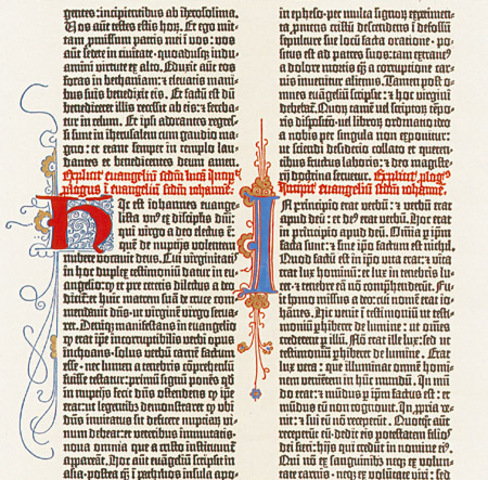 gentes: incipientibus ab iherosolima.
Vos aūt testes estis horū. Et ego mit-
tam promissum patris mei ī vos: vos
aūt sedete in civitate · quoadusq; indu-
amini virtute ex alto. Eduxit aūt eos
foras in bethaniam: et elevatis mani-
bus suis benedixit eis. Et factū est dū
benediceret illis recessit ab eis: et fereba-
tur in celum. Et ipi adorantes regres-
si sunt in iherusalem cum gaudio ma-
gno: et erant semper in templo lau-
dantes et benedicentes deum amen.
Explicit evangeliū secdm lucā Incip
prologus ī evangeliū secdm iohannē.
Hic est iohannes evange-
lista unus ex discipulis dni:
qui virgo a deo electus ē:
quē de nuptijs volentem
nubere vocavit deus. Cui virginitatis
in hoc duplex testimoniū datur in ev-
angelio: quod et pre ceteris dilectus a deo
dicit: et huic matrem suā de cruce com-
mendavit dns · ut virginē virgo serva-
ret. Deniq; manifestans in evangelio
quod erat ipe incorruptibilis verbi opus
inchoans · solus verbū carnē factum
esse · nec lumen a tenebris cōprehensū
fuisse testatur: primū signū ponēs qd
in nuptijs fecit dūs ostendens quod ipe
erat: ut legentibus demonstraret quod ubi
dūs invitatus sit deficere nuptiarū vi-
num debeat: et veteribus immutatis ·
nova omnia que a cristo instituunt
appareāt. Hoc aūt evangeliū scripsit in
asia · postea quam ī pathmos insula apo-
in epheso · per multa signorū experimen-
ta promens cristū descendens ī defossū
sepulture sue locū facta oratione · po-
situs est ad patres suos: tam extraneus
a dolore mortis quam a corruptione car-
nis invenitur alienus. Tamen post o-
mnes evangeliū scripsit: et hoc virgini
debebat. Quorū tamē vel scriptorū tēpo-
ris dispositio · vel librorū ordinatio ideo
a nobis per singula non exponitur:
ut sciendi desiderio collato et queren-
tibus fructus laboris: et deo magiste-
rij doctrina servetur. Explicit plogus
Incipit evangeliū secdm iohannē.
In principio erat verbū: et verbū erat
apud deū: et deus erat verbū. Hoc erat
in principio apud deū. Omnia per ipm
facta sunt: et sine ipo factum est nichil.
Quod factū est in ipo vita erat: et vita
erat lux hominū: et lux in tenebris lu-
cet · et tenebre eā nō comprehenderūt. Fu-
it homo missus a deo: cui nomē erat io-
hannes. Hic venit ī testimoniū ut testi-
moniū phiberet de lumine: ut omēs
crederent per illū. Nō erat ille lux: sed ut
testimoniū phiberet de lumine. Erat
lux vera: que illuminat omnē homi-
nem venientem in hūc mūdum. In mū-
do erat: et mūdus per ipm factus est: et
mūdus eū non cognovit. In propria ve-
nit: et sui eū nō receperūt. Quotquot aūt
receperūt eū · dedit eis potestatem filios
dei fieri: hijs qui credūt in nomine eius.
Qui nō ex sanguinibus · neq; ex volun-
tate carnis · neq; ex voluntate viri: sed